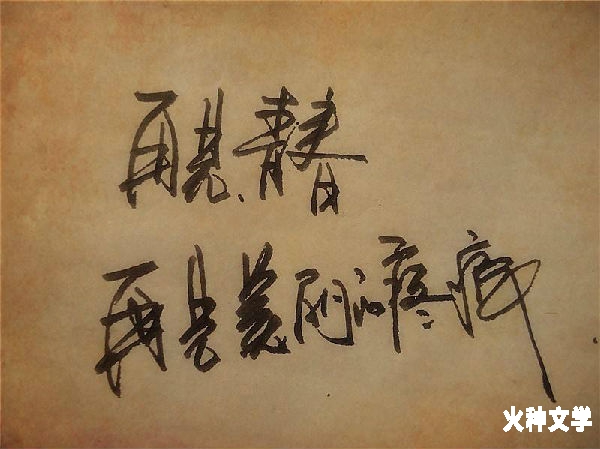 再见、青春
再见美丽的疼痛
火种文学